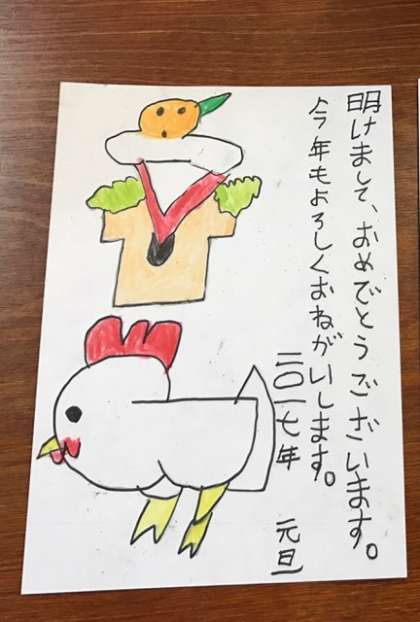 明けまして、おめでとうございます。
今年もよろしくおねがいします。
二〇一七年 元旦